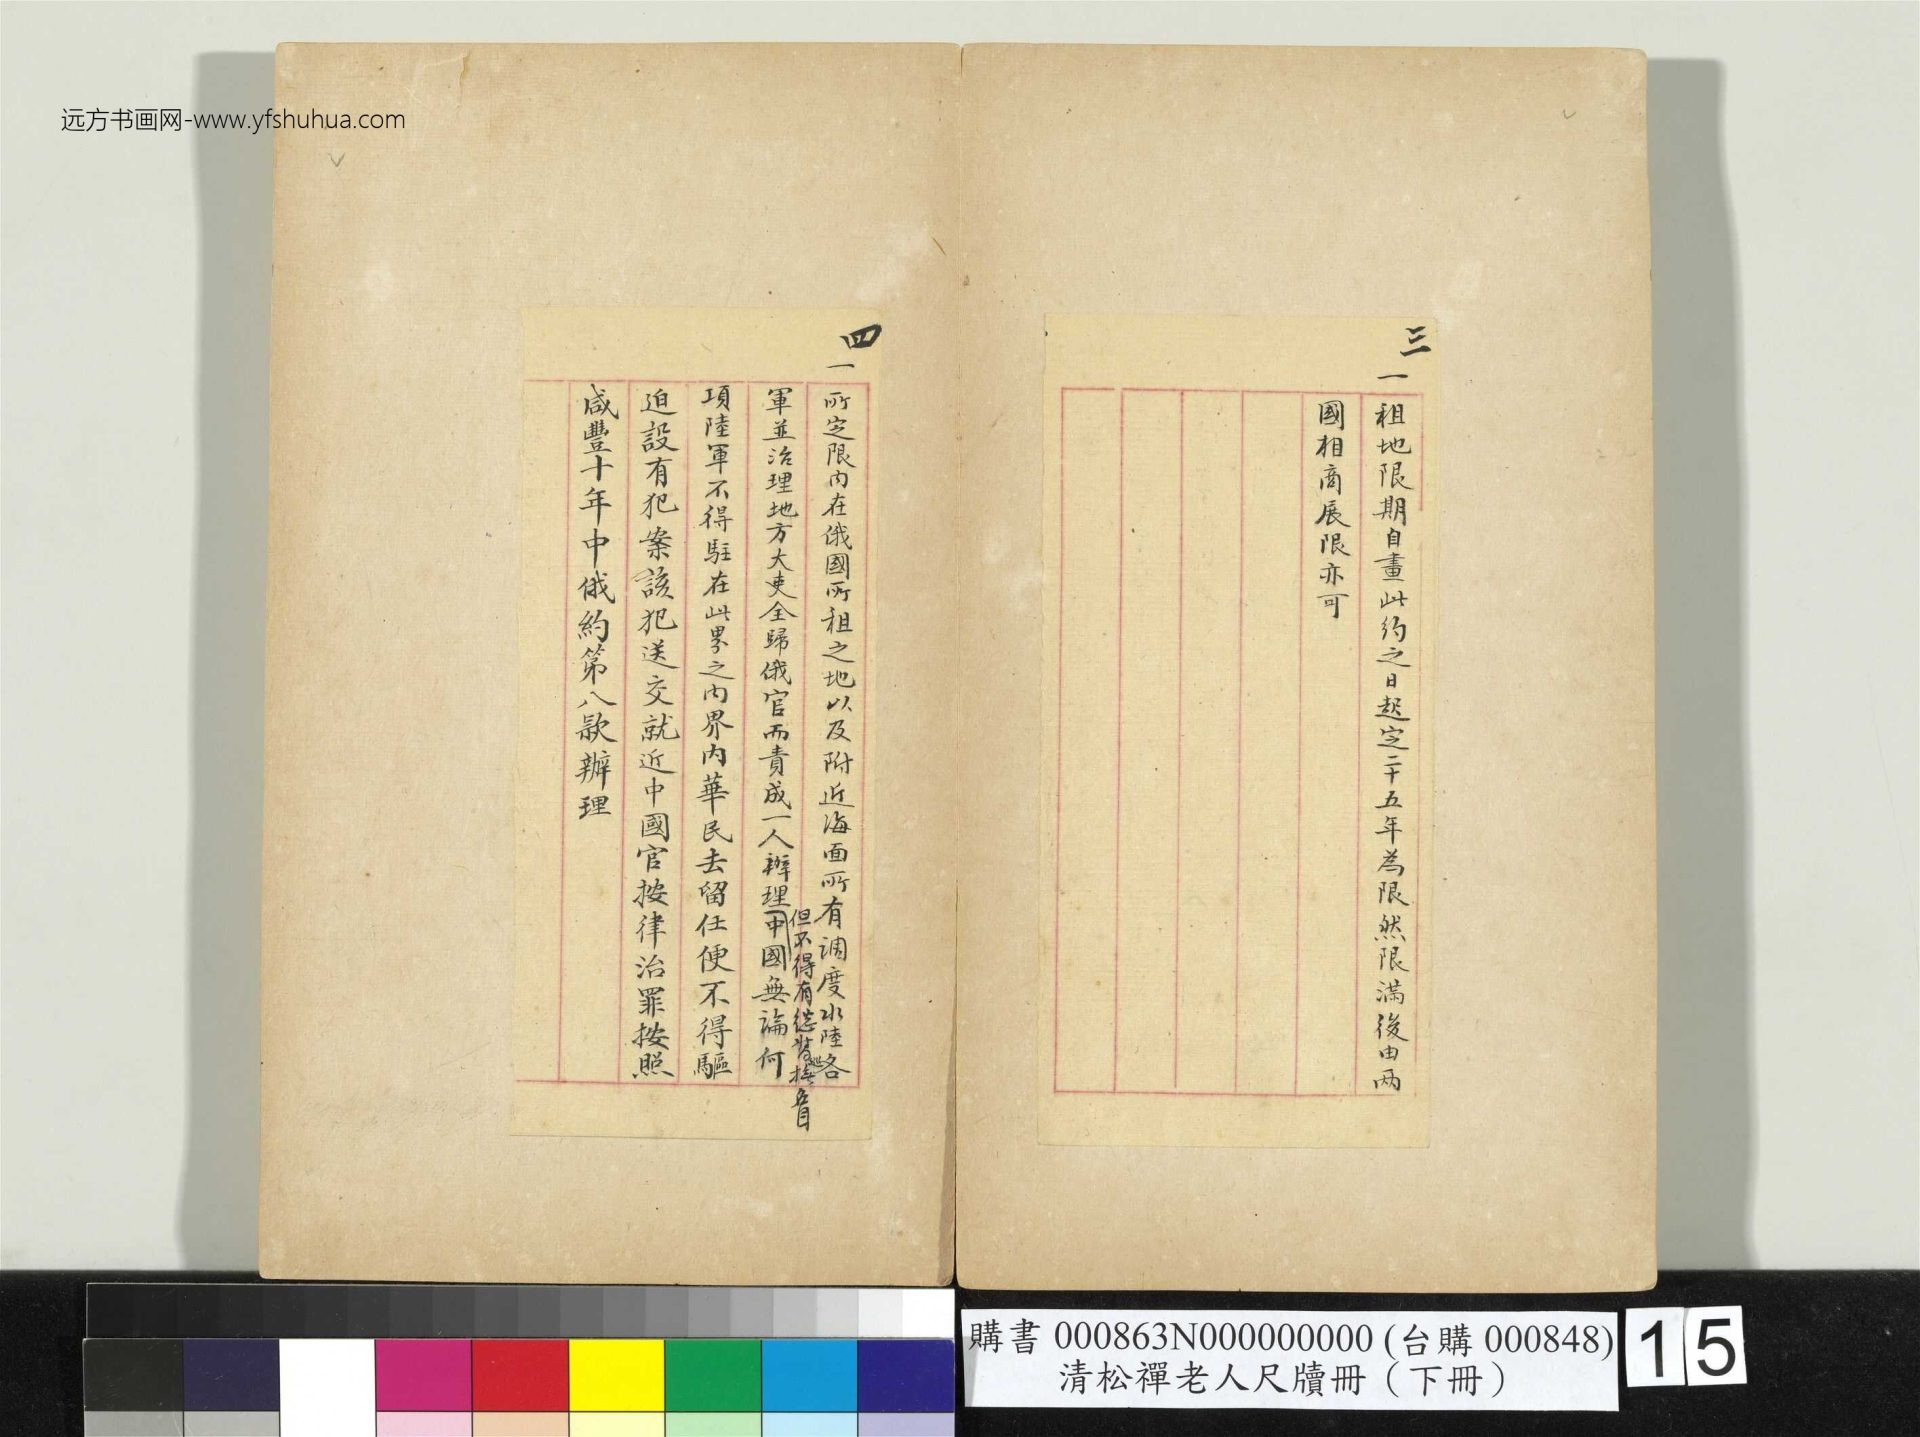 远方书画网-www.yfshuhua.com
三
一
租地限期自畫此約之日起定二十五年為限然限滿後由两
國相商展限亦可
四
一
所定限内在俄國所租之地以及附近海面所有調度水陸各
軍並治理地方大吏全歸俄官而責成一人辦理中國無論何
但不得有總督巡撫名目
項陸軍不得駐在此界之内界内華民去留任便不得驅
迫設有犯案該犯送交就近中國官按律治罪按照
咸豐十年中俄約第八款辦理
購書 000863N000000000 (台購 000848)
清松禪老人尺牘冊（下冊）
15